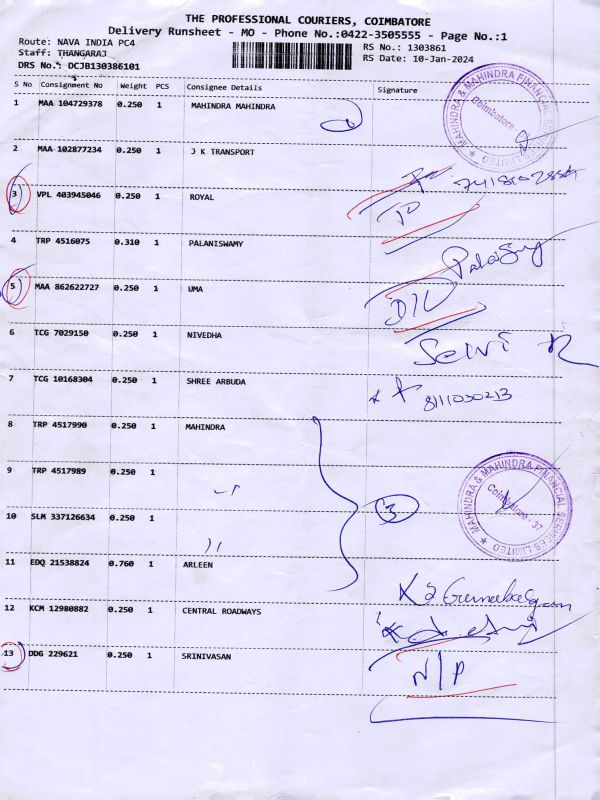 THE PROFESSIONAL COURIERS, COIMBATORE
Delivery Runsheet - MO - Phone No.:0422-3505555 - Page No.:1
Route: NAVA INDIA PC4
Staff: THANGARAJ
DRS No.: DCJB130386101
RS No.: 1303861
RS Date: 10-Jan-2024
S No Consignment No Weight PCS Consignee Details Signature
1 MAA 104729378 0.250 1 MAHINDRA MAHINDRA
MAHINDRA & MAHINDRA FINANCIAL SERVICES LIMITED
Coimbatore
2 MAA 102877234 0.250 1 J K TRANSPORT
3 VPL 403945046 0.250 1 ROYAL
4 TRP 4516075 0.310 1 PALANISWAMY
5 MAA 862622727 0.250 1 UMA
D/L
6 TCG 7029150 0.250 1 NIVEDHA
Selvi
7 TCG 10168304 0.250 1 SHREE ARBUDA
8111030213
8 TRP 4517990 0.250 1 MAHINDRA
9 TRP 4517989 0.250 1
3
MAHINDRA & MAHINDRA FINANCIAL SERVICES LIMITED
Coimbatore - 37
10 SLM 337126634 0.250 1
11 EDQ 21538824 0.760 1 ARLEEN
12 KCM 12980882 0.250 1 CENTRAL ROADWAYS
13 DDG 229621 0.250 1 SRINIVASAN
N/P